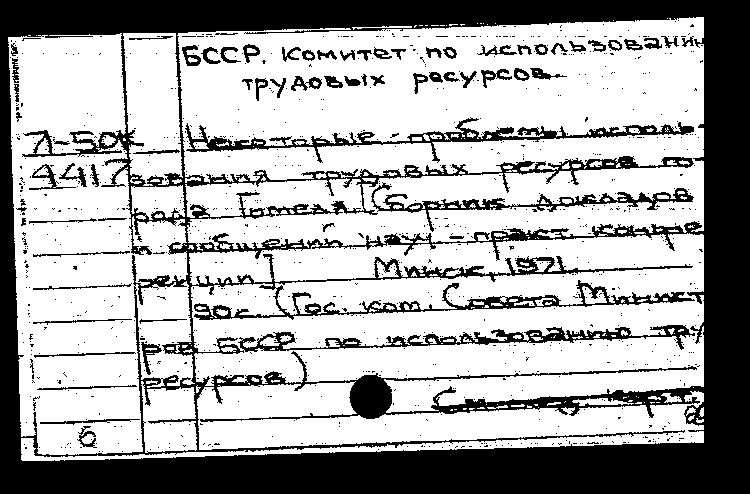 БССР. Комитет по использовани
трудовых ресурсов.
Л-50К Некоторые проблемы исполь-
4417 зования трудовых ресурсов го-
рода Гомеля. [Сборник докладов
и сообщений науч.-практ. конфе
ренции] Минск, 1971.
90с. (Гос. ком. Совета Минист
ров БССР по использованию тру
ресурсов)
См. след. карт.
б